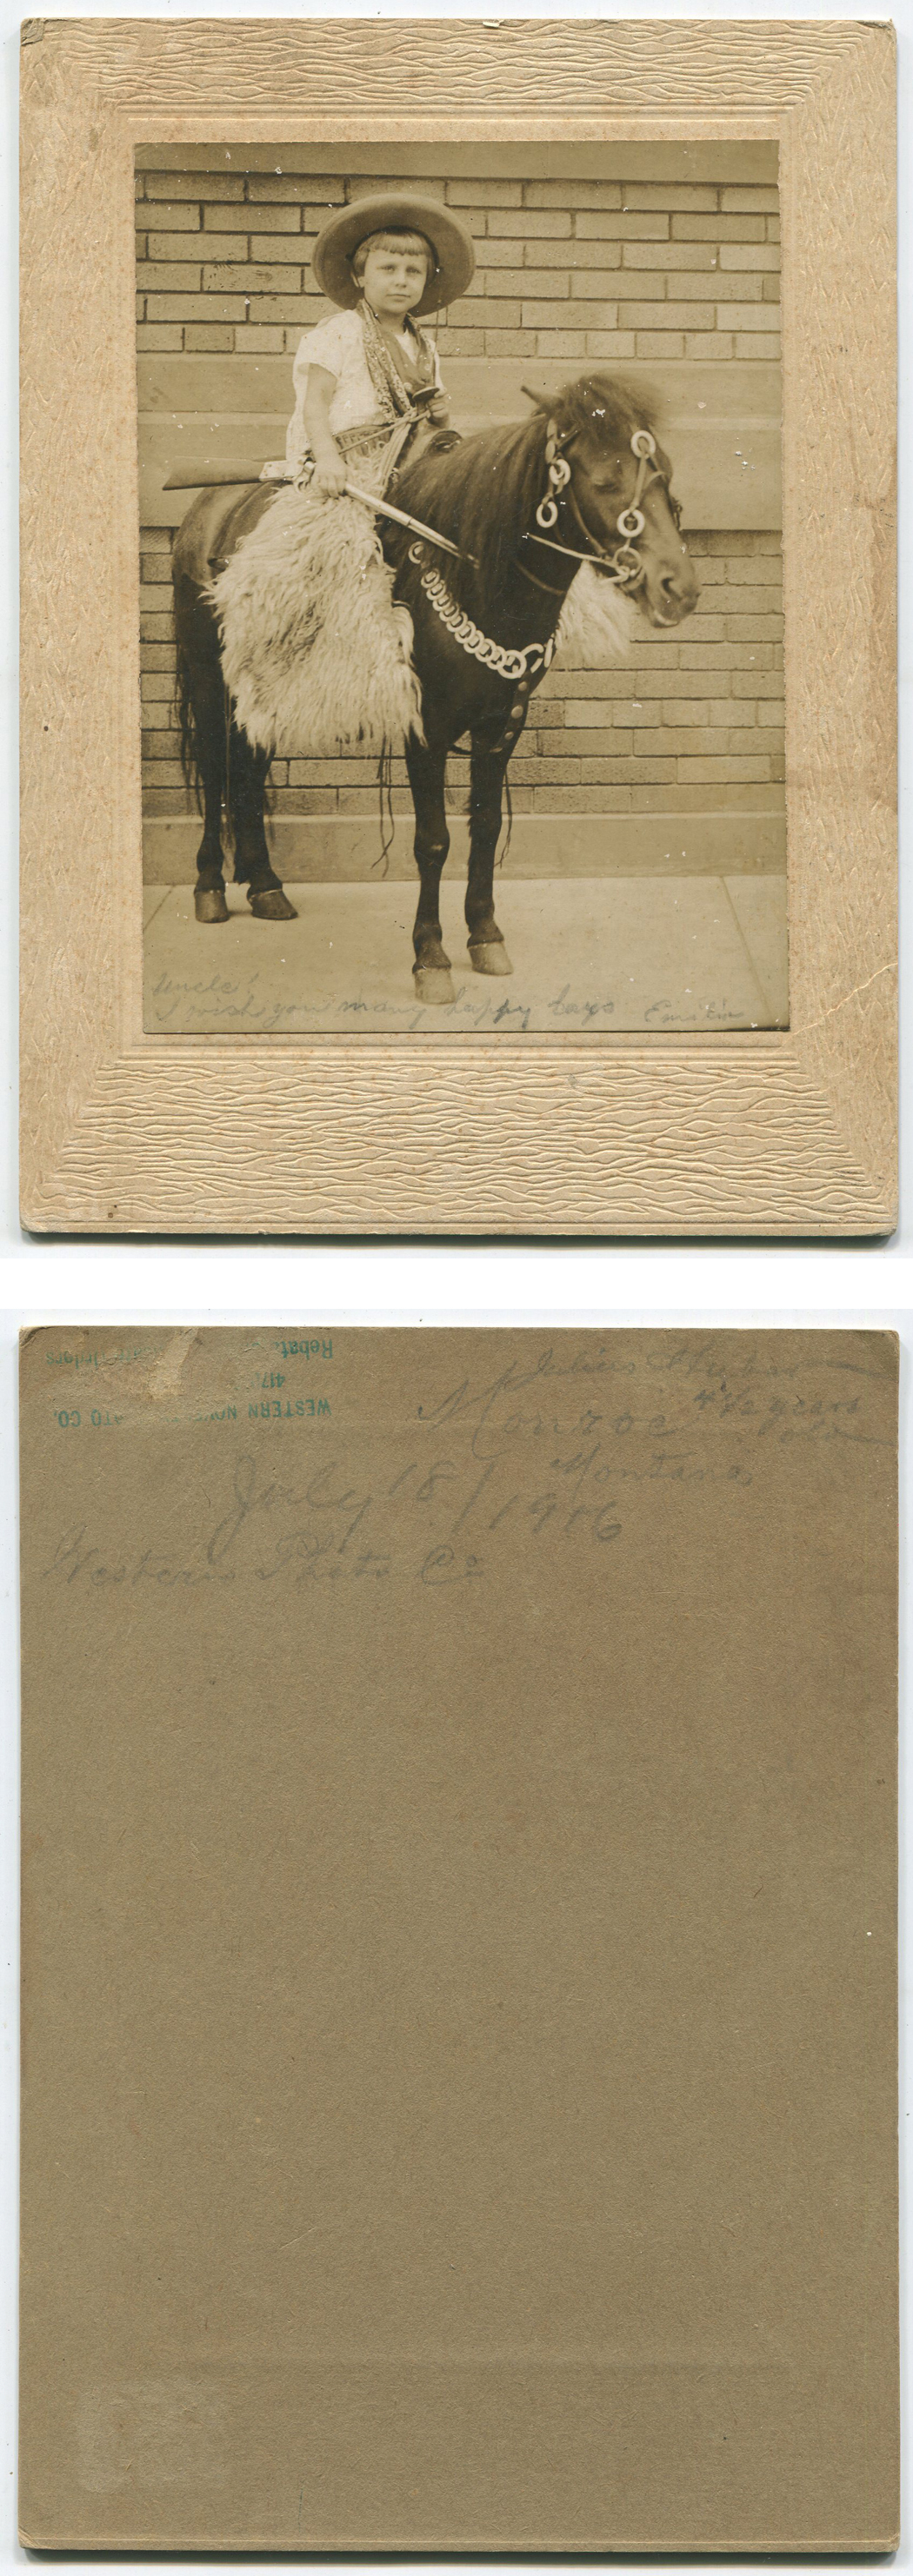 Uncle!
I wish you many happy days Emilie
Rebat
417
WESTERN CO.
Julius
Monroe 4 1/2 years old
Montana
July 18 / 1916
Western Photo Co